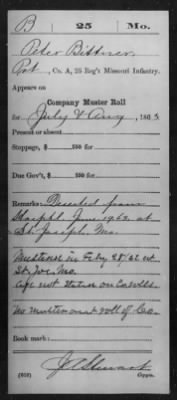 B 25 Mo.
Peter Bittner
Pvt, Co. A, 25 Reg't Missouri Infantry.
Appears on
Company Muster Roll
for July & Aug, 186
Present or absent
Stoppage, $ 100 for
Due Gov't, $ 100 for
Remarks: Deserted from
Hospital June 1862 at
St. Joseph, Mo.
Mustered in Feby 28/62 at
St. Joe, Mo.
Age not stated on Co rolls.
No muster out roll of Co.
Book mark:
J A Stewart
Copyist.